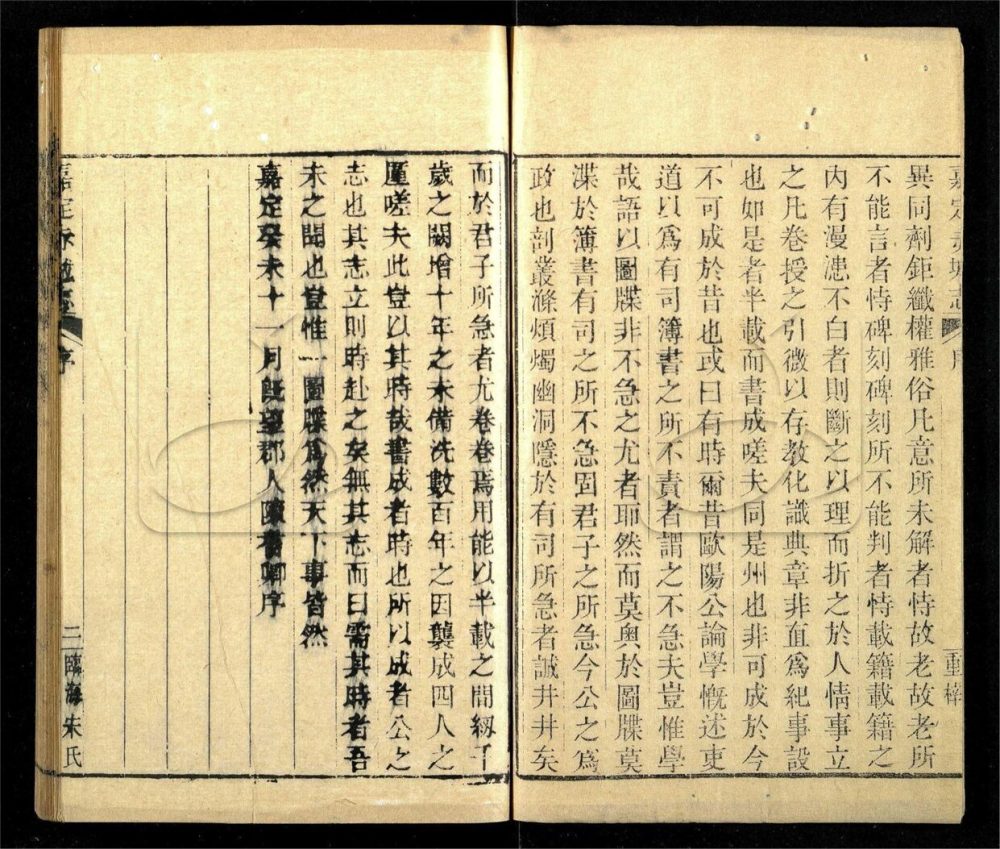 嘉定赤城志 序 重梓
異同劑鉅纖權雅俗凡意所未解者恃故老故老所
不能言者恃碑刻碑刻所不能判者恃載籍載籍之
內有漫漶不白者則斷之以理而折之於人情事立
之凡卷授之引徵以存教化識典章非直爲紀事設
也如是者半載而書成嗟夫同是州也非可成於今
不可成於昔也或曰有時爾昔歐陽公論學慨述吏
道以爲有司簿書之所不責者謂之不急夫豈惟學
哉語以圖牒非不急之尤者耶然而莫奥於圖牒莫
渫於簿書有司之所不急固君子之所急今公之爲
政也剖叢滌煩燭幽洞隱於有司所急者誠井井矣
而於君子所急者尤卷卷焉用能以半載之間紉千
歲之闕增十年之未備洗數百年之因襲成四人之
匱嗟夫此豈以其時哉書成者時也所以成者公之
志也其志立則時赴之矣無其志而曰需其時者吾
未之聞也豈惟一圖牒爲然天下事皆然
嘉定癸未十一月旣望郡人陳耆卿序
嘉定赤城志 序 二 臨海宋氏